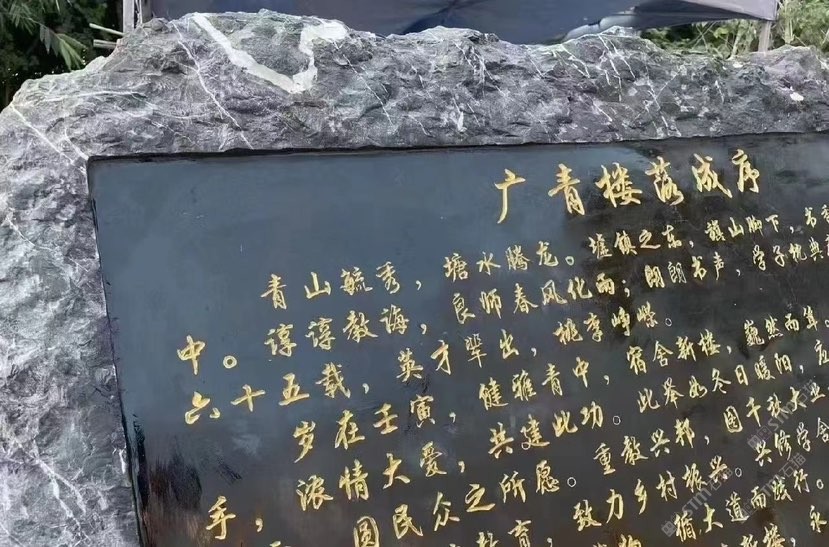 广青楼落成序
青山毓秀，塘水腾龙。墟镇之东，旗山脚下，书
中。谆谆教诲，良师春风化雨；朗朗书声，学子
六十五载，英才辈出，桃李峥嵘。
岁在壬寅，健雅青中，宿舍新楼，巍然而
浓情大爱，共建此功。此举如冬日暖阳，
手，圆民众之所愿。重教兴邦，图千秋大业
教育，致力乡村振兴。共修学舍
循大道而践行。
楼，永